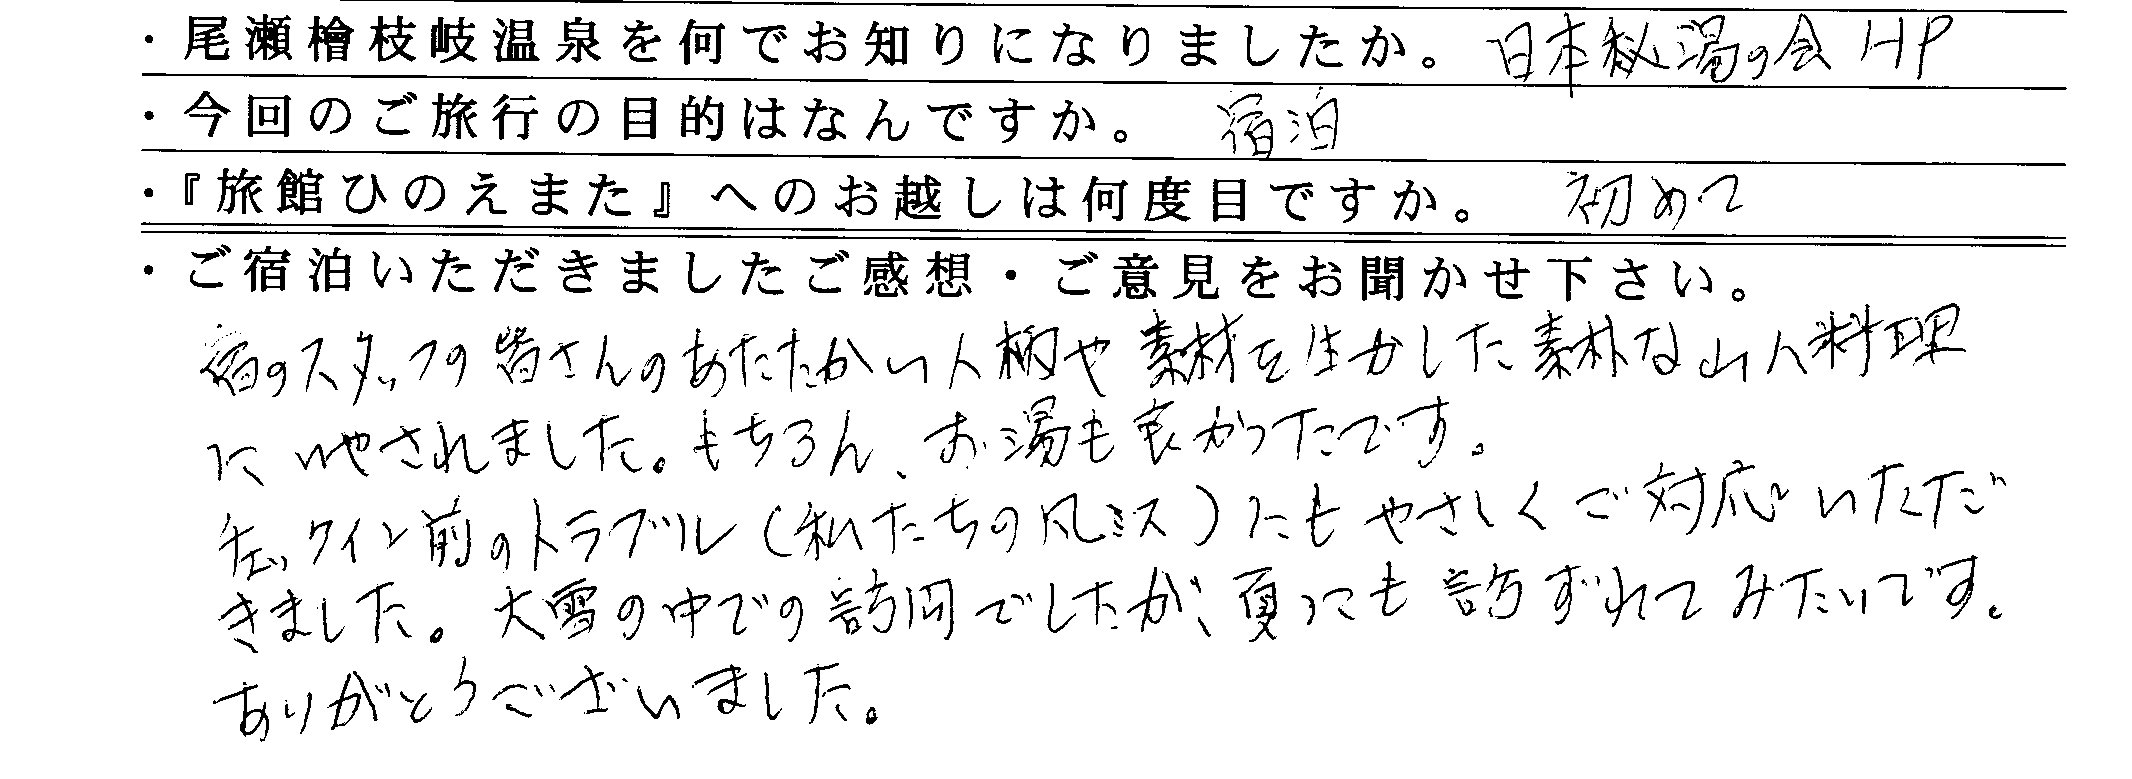 ・尾瀬檜枝岐温泉を何でお知りになりましたか。 日本秘湯の会HP
・今回のご旅行の目的はなんですか。 宿泊
・『旅館ひのえまた』へのお越しは何度目ですか。 初めて
・ご宿泊いただきましたご感想・ご意見をお聞かせ下さい。
宿のスタッフの皆さんのあたたかい人柄や素材を生かした素朴な山人料理
にいやされました。もちろん、お湯も良かったです。
チェックイン前のトラブル(私たちの凡ミス)にもやさしくご対応いただ
きました。大雪の中での訪問でしたが、夏にも訪ずれてみたいです。
ありがとうございました。